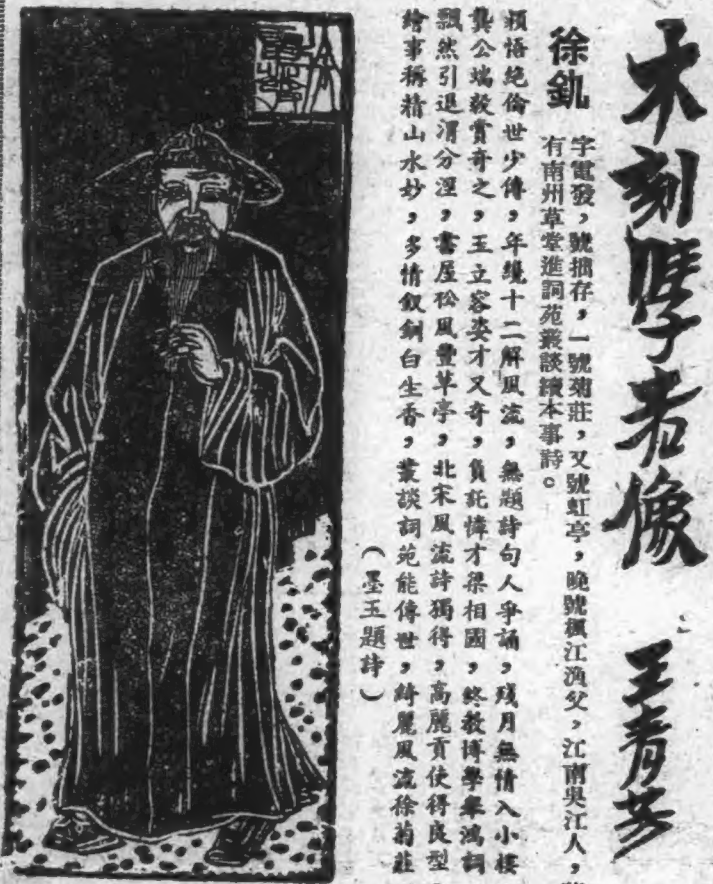 木刻學者像
王青芳
徐釚
字電發，號拙存，一號菊莊，又號虹亭，晚號楓江漁父，江南吳江人，
有南州草堂進詞苑叢談續本事詩。
穎悟絕倫世少儔，年纔十二解風流，無題詩句人爭誦，殘月無情入小樓
龔公端毅賞奇之，玉立容姿才又奇，負託憐才梁相國，終教博學舉鴻詞
飄然引退渭分涇，書屋松風豐草亭，北宋風流詩獨得，高麗貢使得良型
繪事稱精山水妙，多情釵釧白生香，叢談詞苑能傳世，綺麗風流徐菊莊
（墨玉題詩）